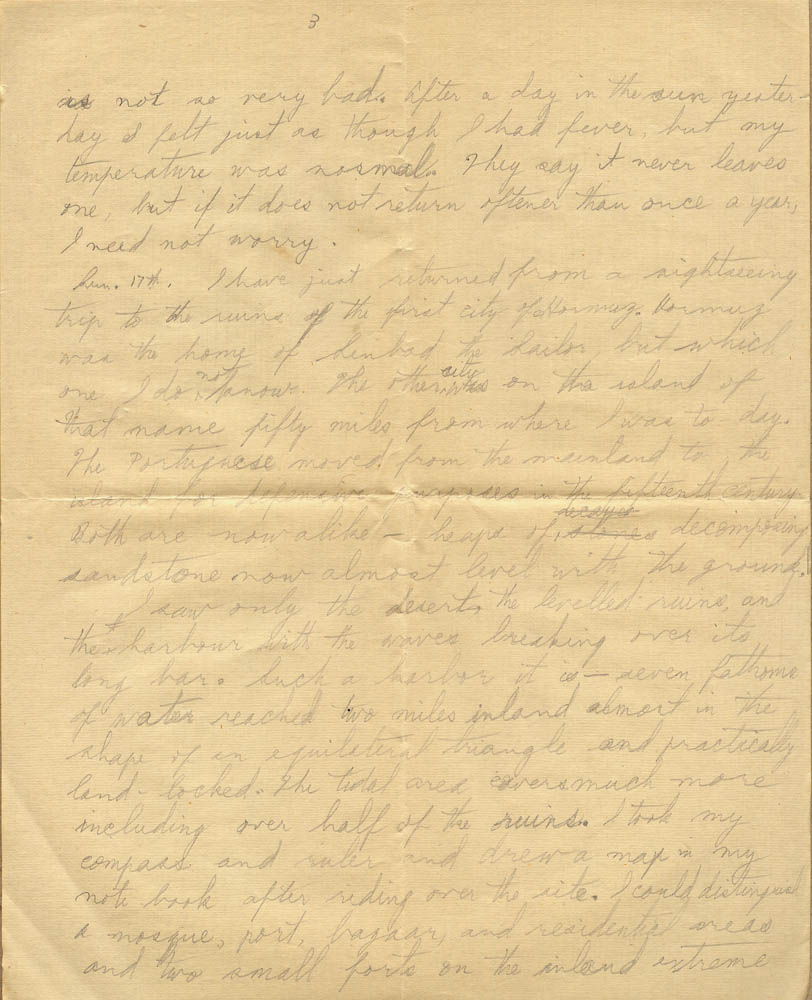 3
is not so very bad. After a day in the sun yester-
day I felt just as though I had fever, but my
temperature was normal. They say it never leaves
one, but if it does not return oftener than once a year,
I need not worry.
Sun. 17th. I have just returned from a sightseeing
trip to the ruins of the first city of Hormuz. Hormuz
was the home of Sinbad the Sailor, but which
one I do not know. The other city is on the island of
that name fifty miles from where I was to-day.
The Portuguese moved from the mainland to the
island for defensive purposes in the fifteenth century.
Both are now alike – heaps of decomposing
sandstone now almost level with the ground.
I saw only the desert, the levelled ruins, and
the harbour with the waves breaking over its
long bar. Such a harbor it is – seven fathoms
of water reached two miles inland almost in the
shape of an equilateral triangle and practically
land-locked. The tidal area covers much more
including over half of the ruins. I took my
compass and ruler and drew a map in my
note book after riding over the site. I could distinguish
a mosque, port, bazaar, and residential areas
and two small forts on the inland extreme